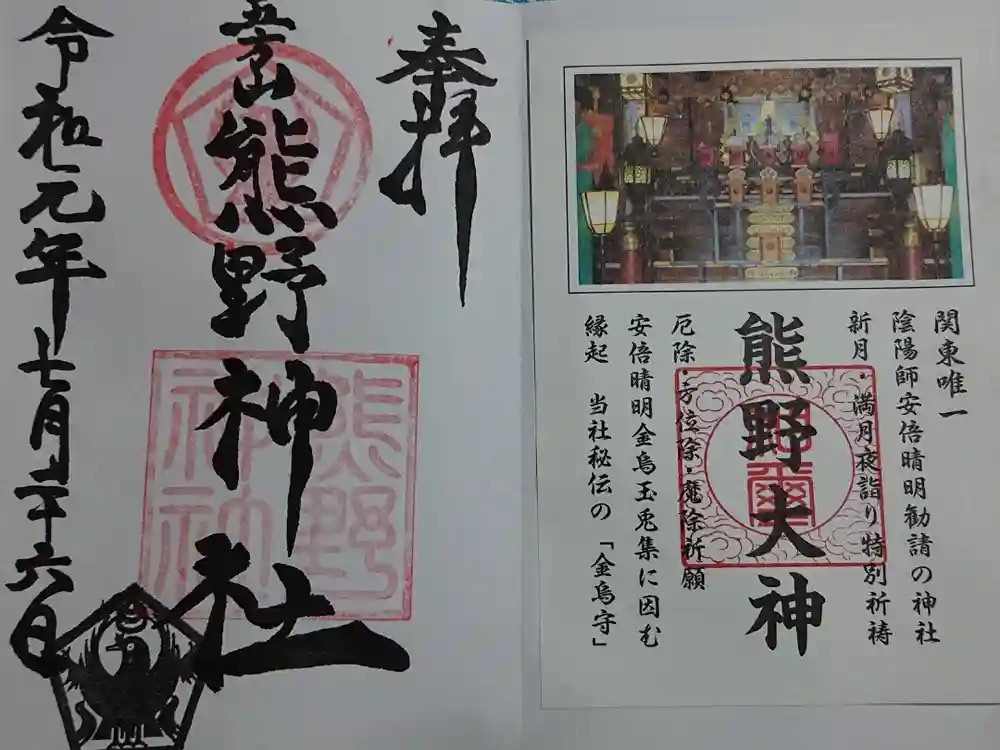 奉拝
五方山
熊野神社
令和元年七月二十六日
熊野
神社
関東唯一
陰陽師安倍晴明勧請の神社
新月・満月夜詣り特別祈祷
熊野大神
厄除・方位除・魔除祈願
安倍晴明金烏玉兎集に因む
縁起 当社秘伝の「金烏守」